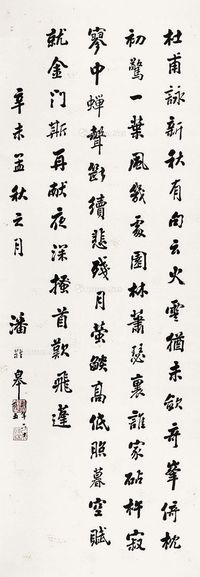 杜甫詠新秋有句云火雲猶未歛奇峯倚枕
初驚一葉風幾處園林蕭瑟裏誰家砧杵寂
寥中蟬聲斷續悲殘月螢燄高低照暮空賦
就金门斯再献夜深搔首歎飛蓬
辛未孟秋之月
潘龄皋